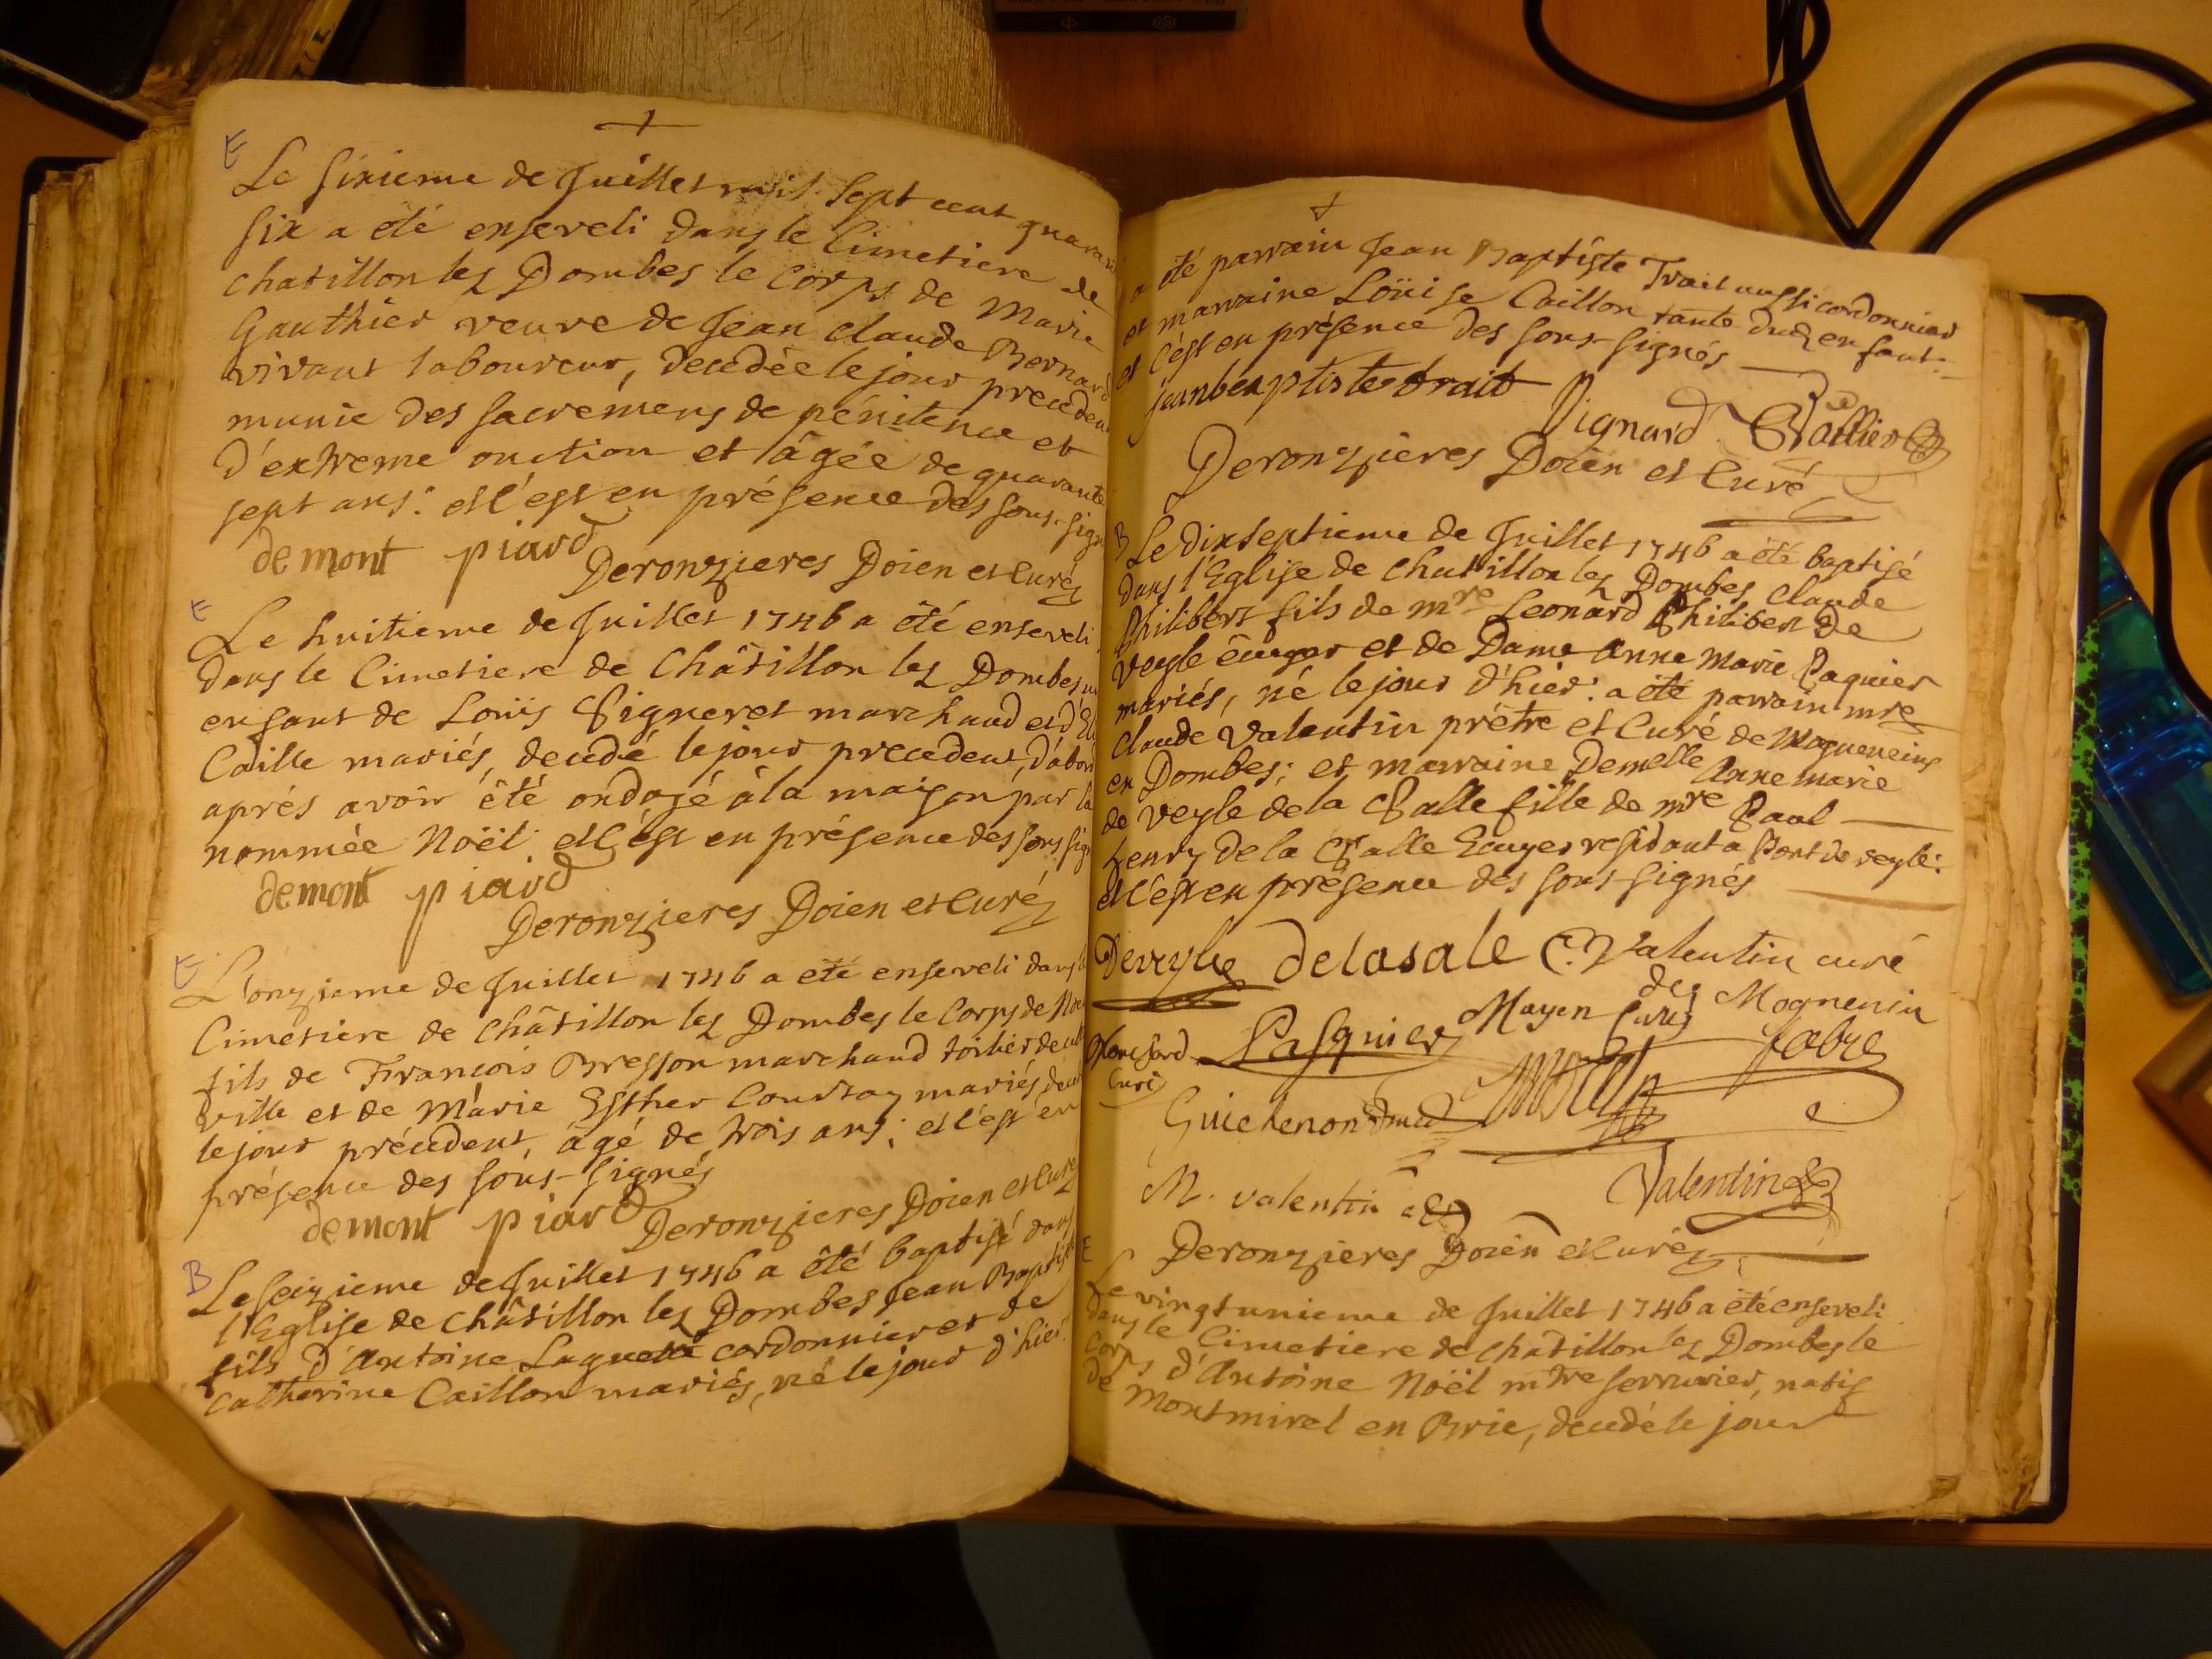 E
Le sixieme de Juillet mil sept cent quarante
six a été enseveli dans le Cimetiere de
chatillon lez Dombes le Corps de Marie
Gauthier veuve de Jean claude Bernard
vivant laboureur, decedée le jour precedent
munie des sacremens de pénitence et
d'extreme onction et âgée de quarante
sept ans: et c'est en présence des sous-sign
demont piard Deronzieres Doien et Curé
E
Le huitieme de Juillet 1746 a été enseveli
dans le Cimetiere de Châtillon lez Dombes un
enfant de Loüis Signeret marchand et d'
Caille mariés, decedé le jour precedent, d'abord
aprés avoir été ondoyé à la maison par la
nommée Noël: et c'est en présence des sous sign
demont piard
Deronzieres Doien et Curé
E
L'onzieme de Juillet 1746 a été enseveli dans
Cimetiere de Châtillon lez Dombes le Corps de
fils de François Bresson marchand toilier de
ville et de Marie Esther Courtoy mariés
le jour précédent, âgé de trois ans; et c'est en
présence des sous-signés
demont piard Deronzieres Doien et Curé
B
Le seizieme de Juillet 1746 a été baptisé dans
l'Eglise de Châtillon lez Dombes Jean Baptiste
fils d'Antoine Laguette cordonnier et de
Catherine Caillon mariés, né le jour d'hier:
a été parrain Jean Baptiste Trait aussi cordonnier
et marraine Loüise Caillon tante dud enfant:
et c'est en présence des sous-signés
jeanbeaptiste trait Vignard
Deronzieres Doien et Curé
B
Le dixseptieme de Juillet 1746 a été baptisé
dans l'Eglise de Chatillon lez Dombes Claude
Philibert fils de mre Leonard Philibert De
Veyle ecuyer et de Dame Anne Marie Paquier
mariés, né le jour d'hier: a été parrain mre
Claude Valentin prétre et Curé de Mogneneins
en Dombes; et marraine Demelle Anne marie
de Veyle de la Salle fille de mre Paul
henry de la Salle Ecuyer residant a Pont de veyle:
et c'est en présence des sous-signés
Deveyle delasale C. Valentin curé
de Mognenin
Mayen Curé
Pasquier fabre
Curé
Guichenon
M. valentin Valentin
Deronzieres Doien et Curé
E
Le vingtunieme de Juillet 1746 a été enseveli
dans le Cimetiere de chatillon lez Dombes le
Corps d'Antoine Noël mtre serrurier, natif
de Montmirel en Brie, decedé le jour